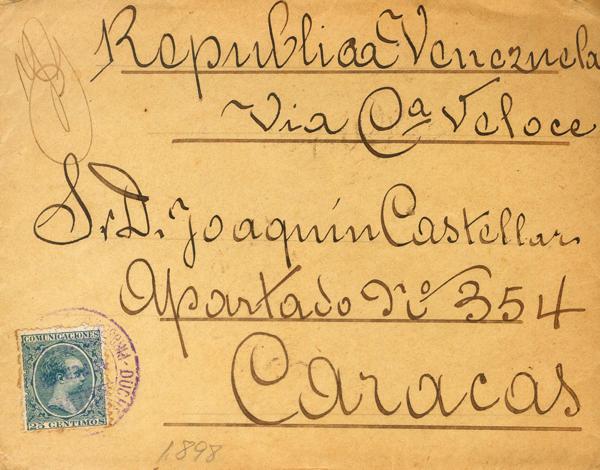 Republica Venezuela
Via Cª Veloce
Sr. D. Joaquín Castellar
Apartado Nº 354
Caracas
COMUNICACIONES
25 CENTIMOS
1898